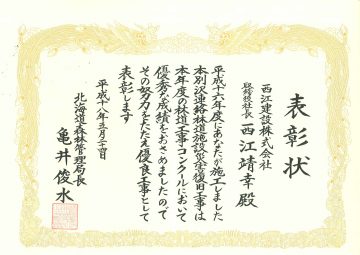 表彰状
西江建設株式会社
取締役社長 西江靖幸殿
平成十六年度にあなたが施工しました
本別沢連絡林道施設災害復旧工事は
本年度の林道工事コンクールにおいて
優秀な成績をおさめましたので
その努力をたたえ優良工事として
表彰します
平成十八年五月二十四日
北海道森林管理局長
亀井俊水